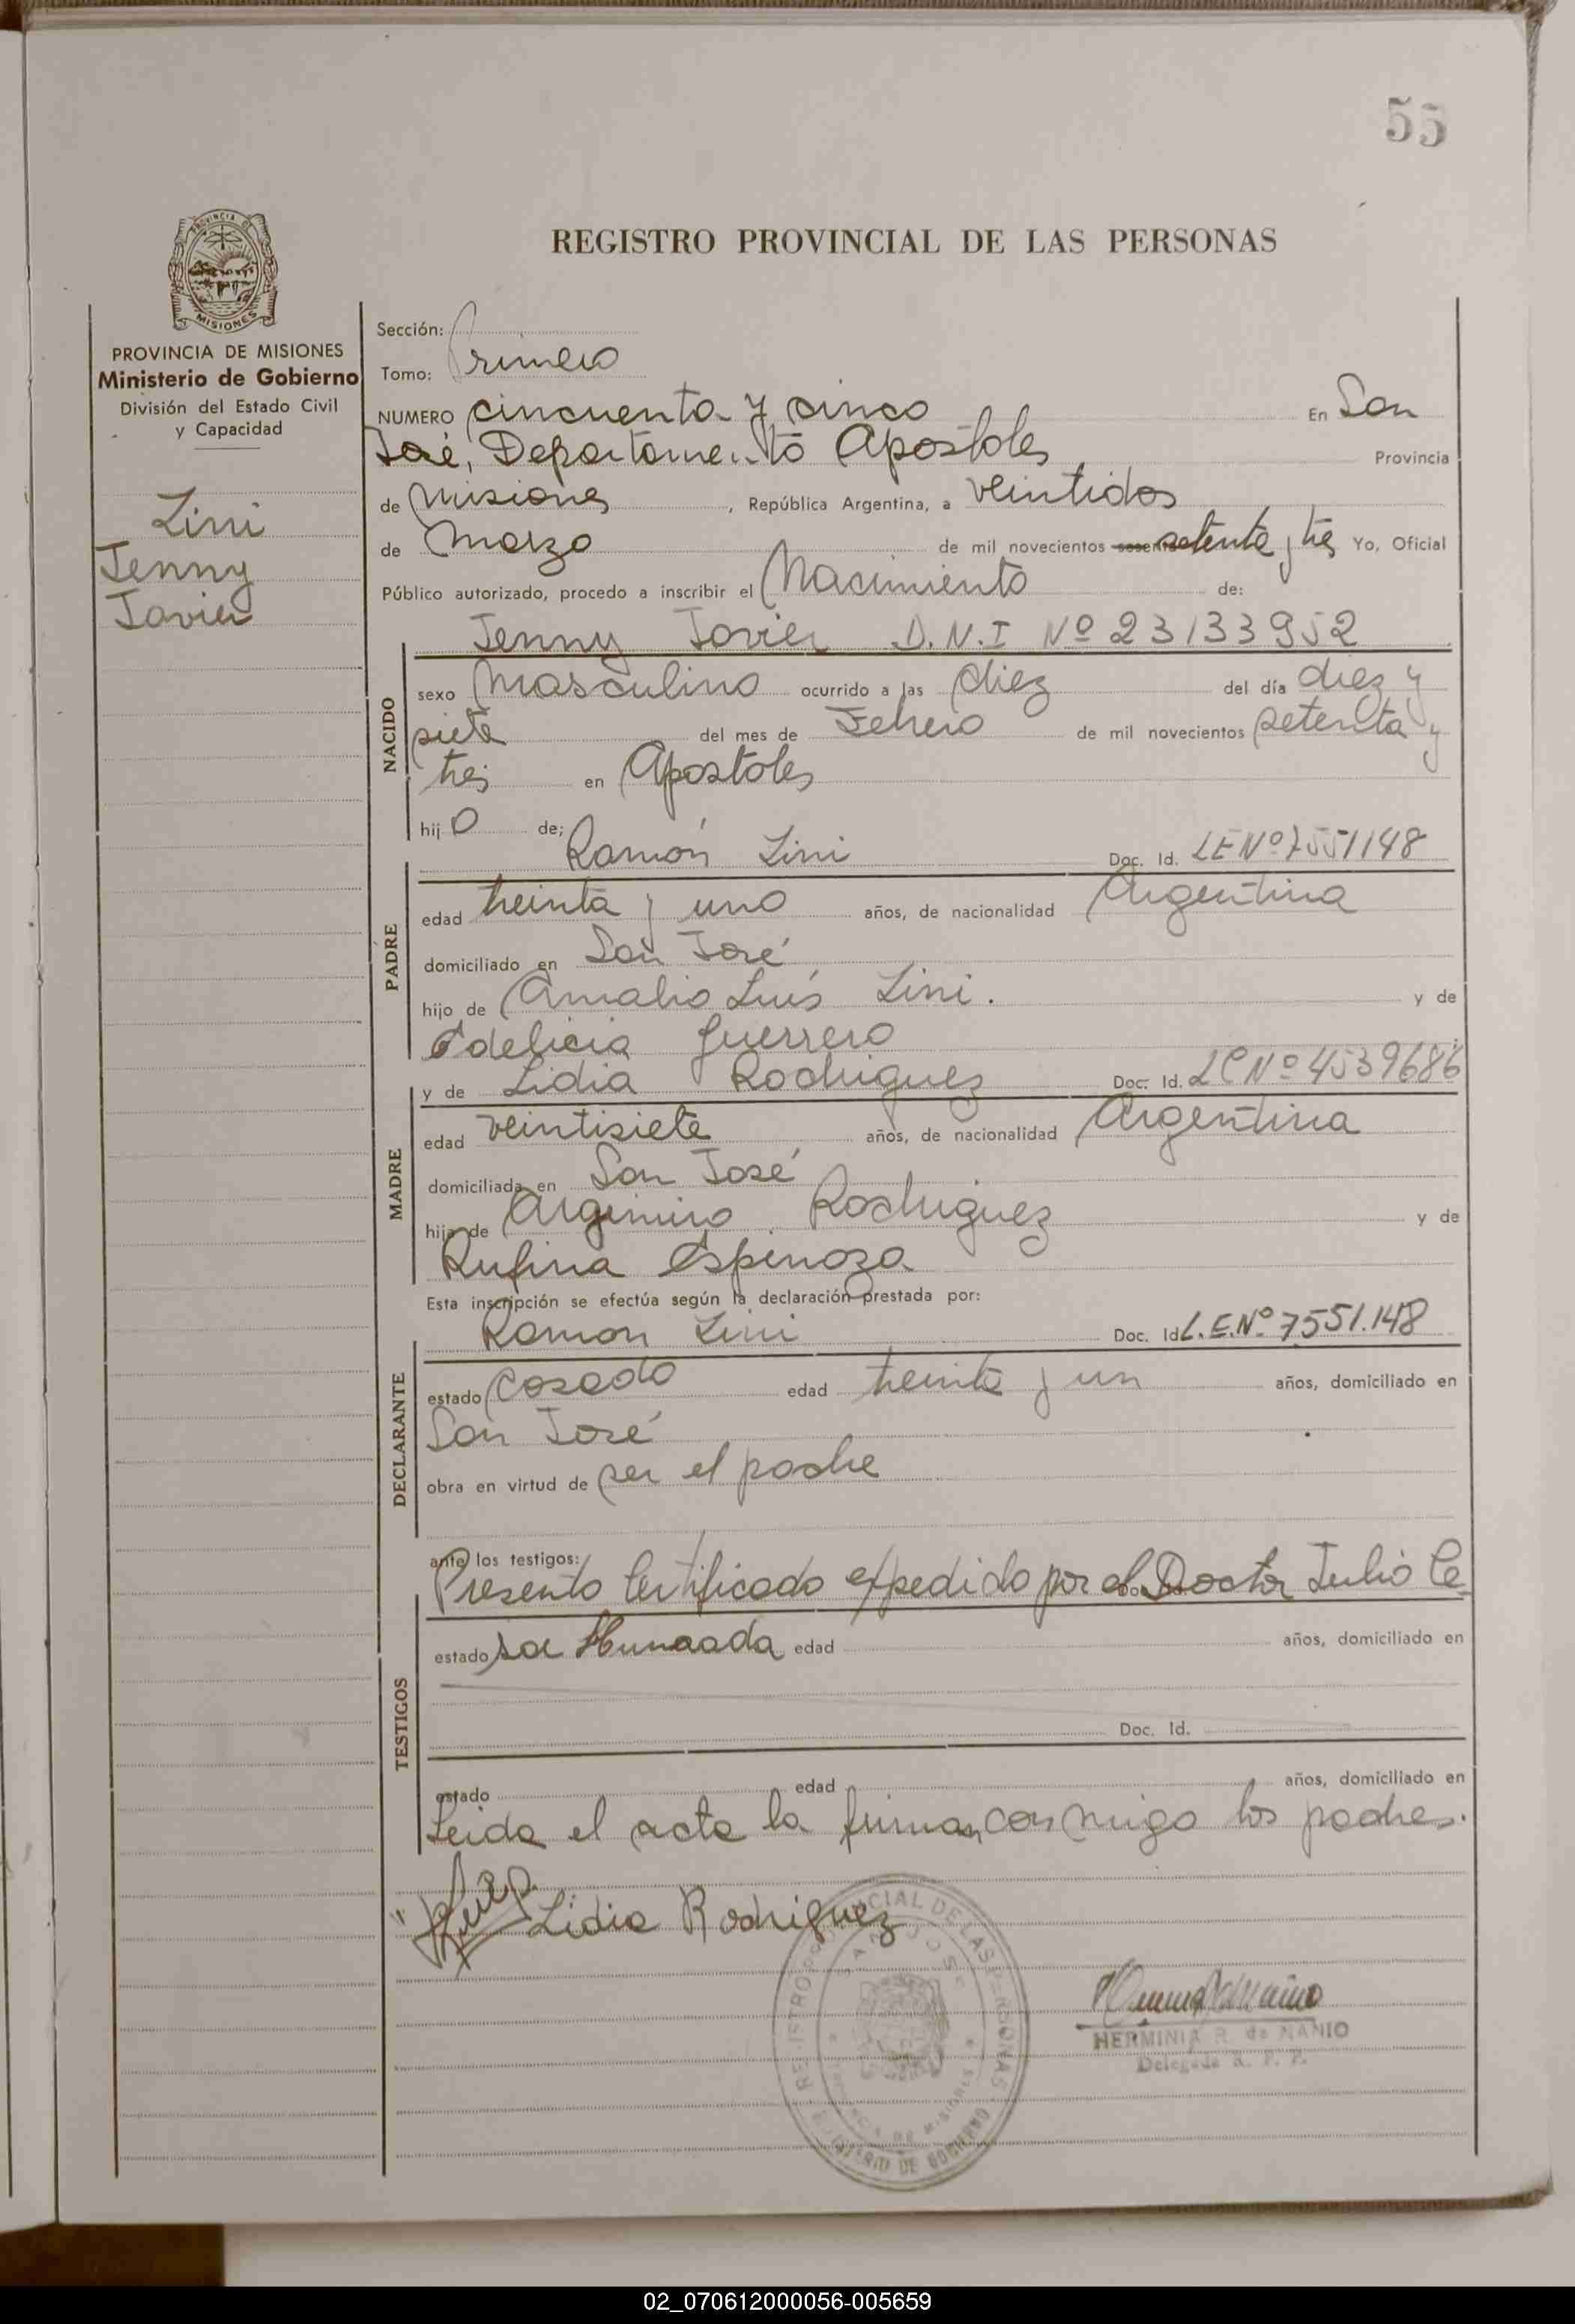 55
REGISTRO PROVINCIAL DE LAS PERSONAS
PROVINCIA DE MISIONES
Ministerio de Gobierno
División del Estado Civil
y Capacidad
Lini
Jenny
Javier
Sección:
Tomo: Primero
NUMERO cincuenta y cinco En San
José, Departamento Apostoles Provincia
de Misiones, República Argentina, a veintidos
de Marzo de mil novecientos setenta y tres Yo, Oficial
Público autorizado, procedo a inscribir el Nacimiento de:
Jenny Javier D.N.I Nº 23133952
NACIDO
sexo Masculino ocurrido a las diez del día diez y
siete del mes de Febrero de mil novecientos setenta y
tres en Apostoles
hijo de;
PADRE
Ramón Lini Doc. Id. LE Nº 7551148
edad treinta y uno años, de nacionalidad Argentina
domiciliado en San José
hijo de Amalio Luís Lini. y de
Edelicia Guerrero
MADRE
y de Lidia Rodriguez Doc. Id. LC Nº 4539686
edad veintisiete años, de nacionalidad Argentina
domiciliada en San José
hija de Argimiro Rodriguez y de
Rufina Espinoza
Esta inscripción se efectúa según la declaración prestada por:
DECLARANTE
Ramon Lini Doc. Id L.E.Nº 7551.148
estado Casado edad treinta y un años, domiciliado en
San José
obra en virtud de ser el padre
TESTIGOS
ante los testigos:
Presento Certificado expedido por el Doctor Julio Ce-
estado sar edad años, domiciliado en
Doc. Id.
estado edad años, domiciliado en
Leida el acta la firman conmigo los padres.
Lidia Rodriguez
REGISTRO PROVINCIAL DE LAS PERSONAS
SAN JOSE
PROVINCIA DE MISIONES
MINISTERIO DE GOBIERNO
HERMINIA R. de NANIO
Delegada R. P. P.
02_070612000056-005659